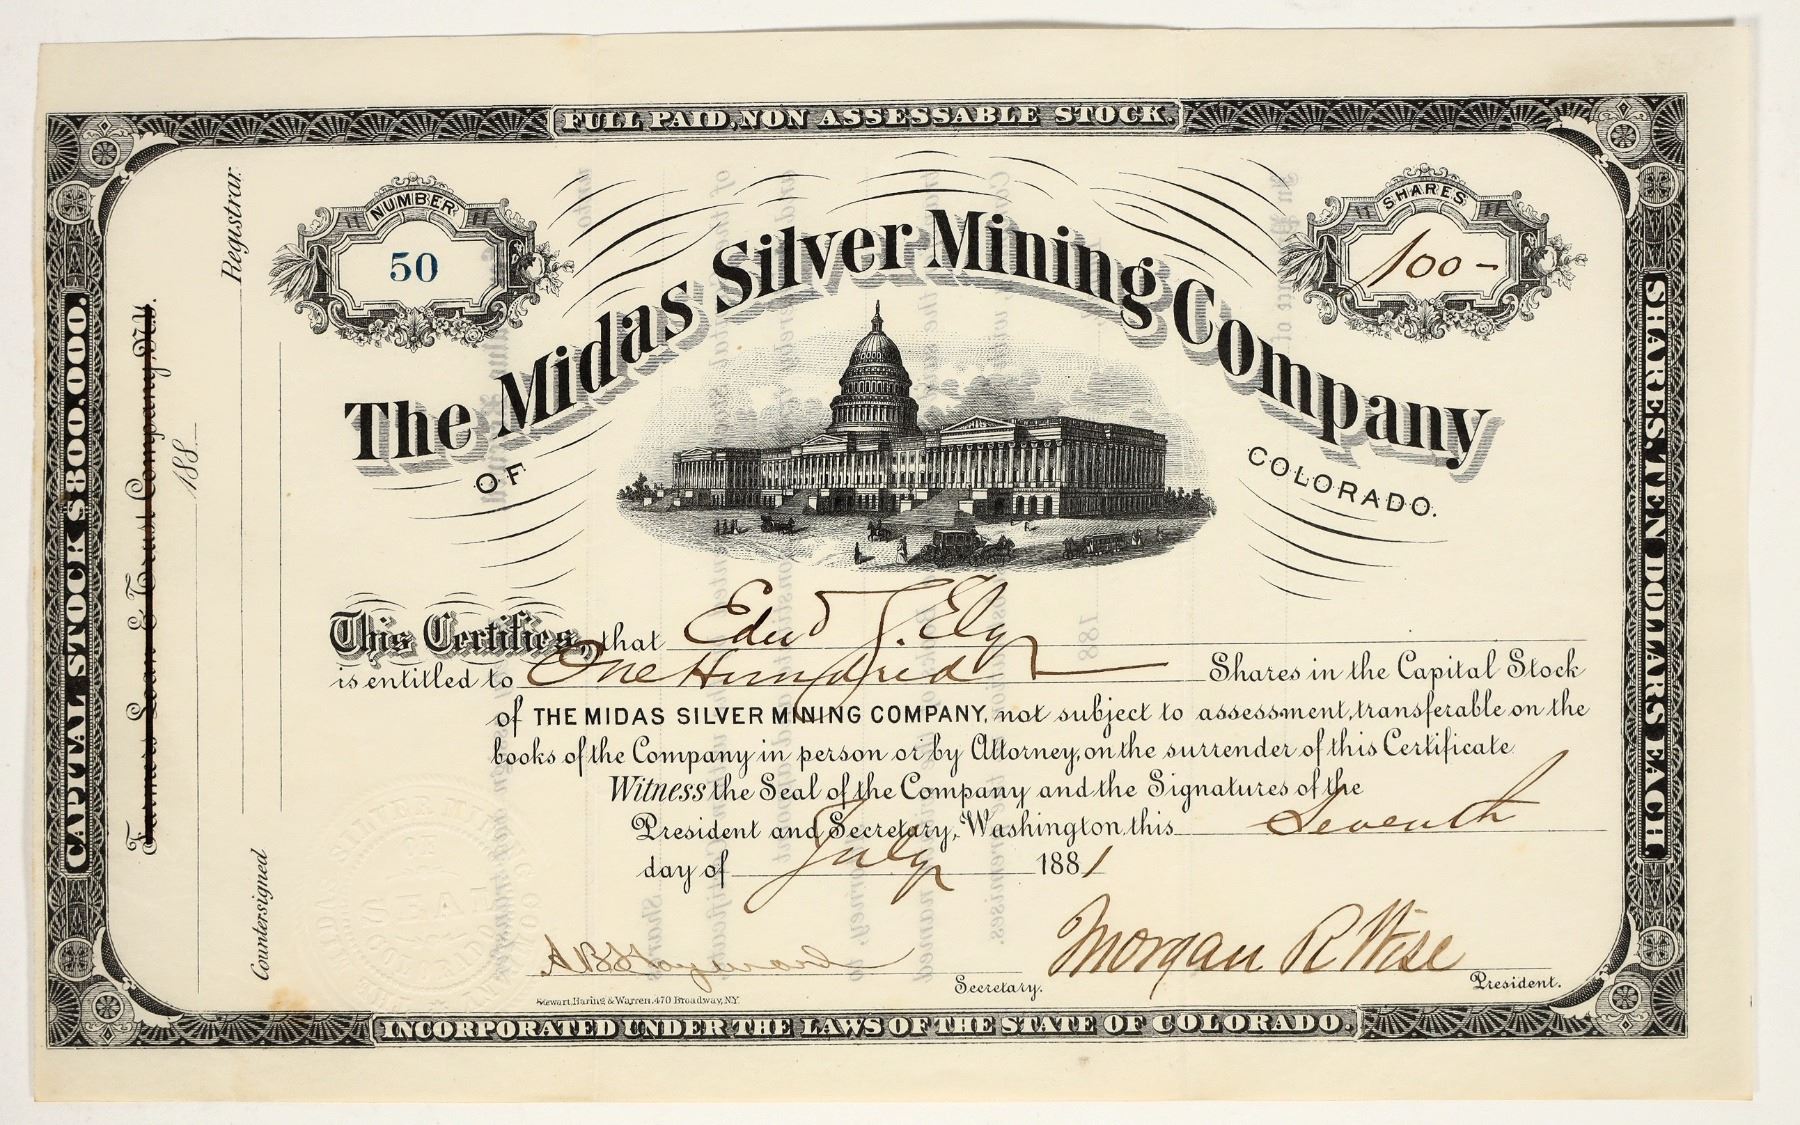 FULL PAID, NON ASSESSABLE STOCK.
NUMBER
50
SHARES
100-
The Midas Silver Mining Company
OF COLORADO.
This Certifies, that Edwd T. Ely
is entitled to One Hundred Shares in the Capital Stock
of THE MIDAS SILVER MINING COMPANY, not subject to assessment, transferable on the
books of the Company in person or by Attorney, on the surrender of this Certificate.
Witness the Seal of the Company and the Signatures of the
President and Secretary, Washington, this Seventh
day of July 1881
A B Hayward Secretary.
Morgan R Wise President.
Stewart, Haring & Warren, 470 Broadway, N.Y.
INCORPORATED UNDER THE LAWS OF THE STATE OF COLORADO.
CAPITAL STOCK $800.000.
Farmers Loan & Trust Company, N.Y.
188
Countersigned
Registrar.
SHARES $2 EACH.
SEAL